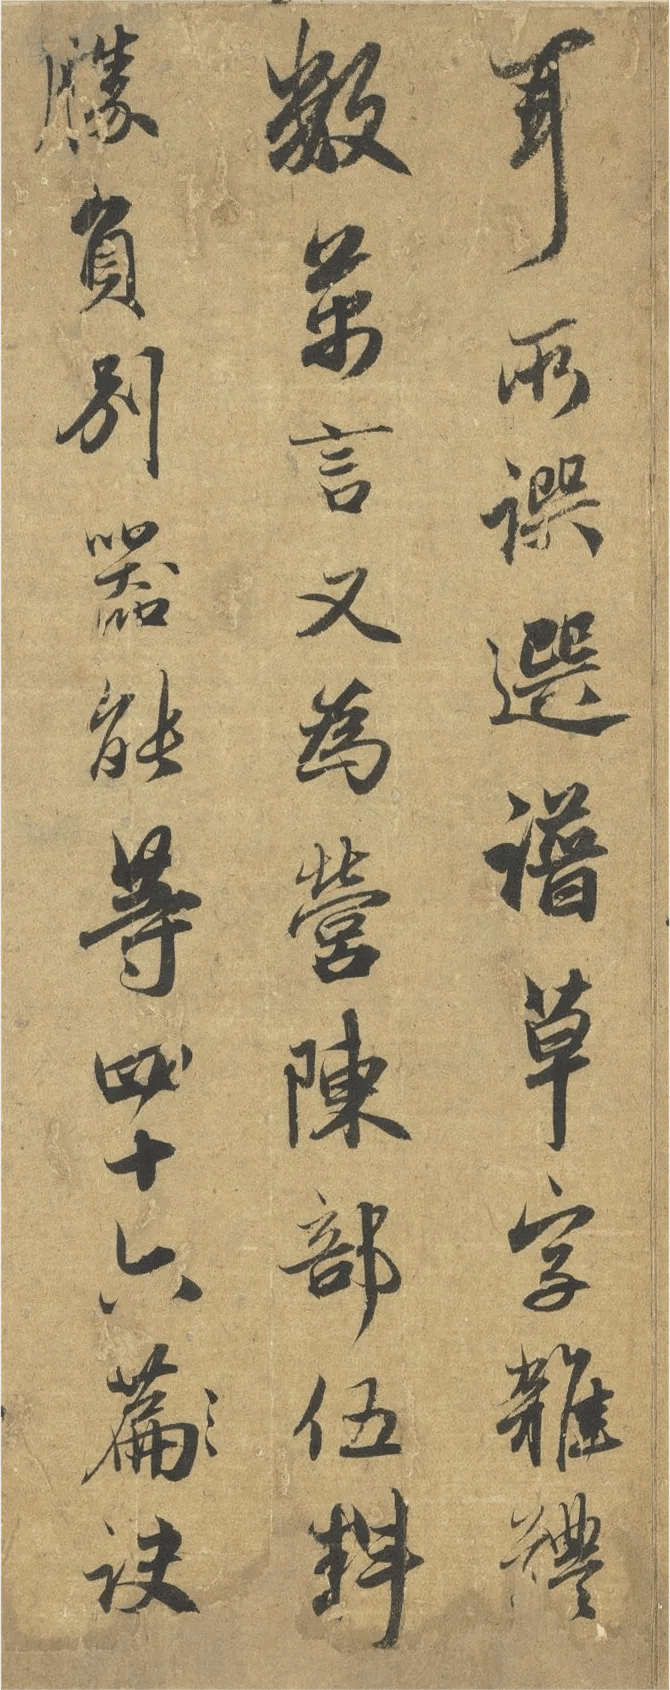 耳所譔選譜草字雜體
數萬言又為營陳部伍料
勝負別器能等四十六篇〻訣